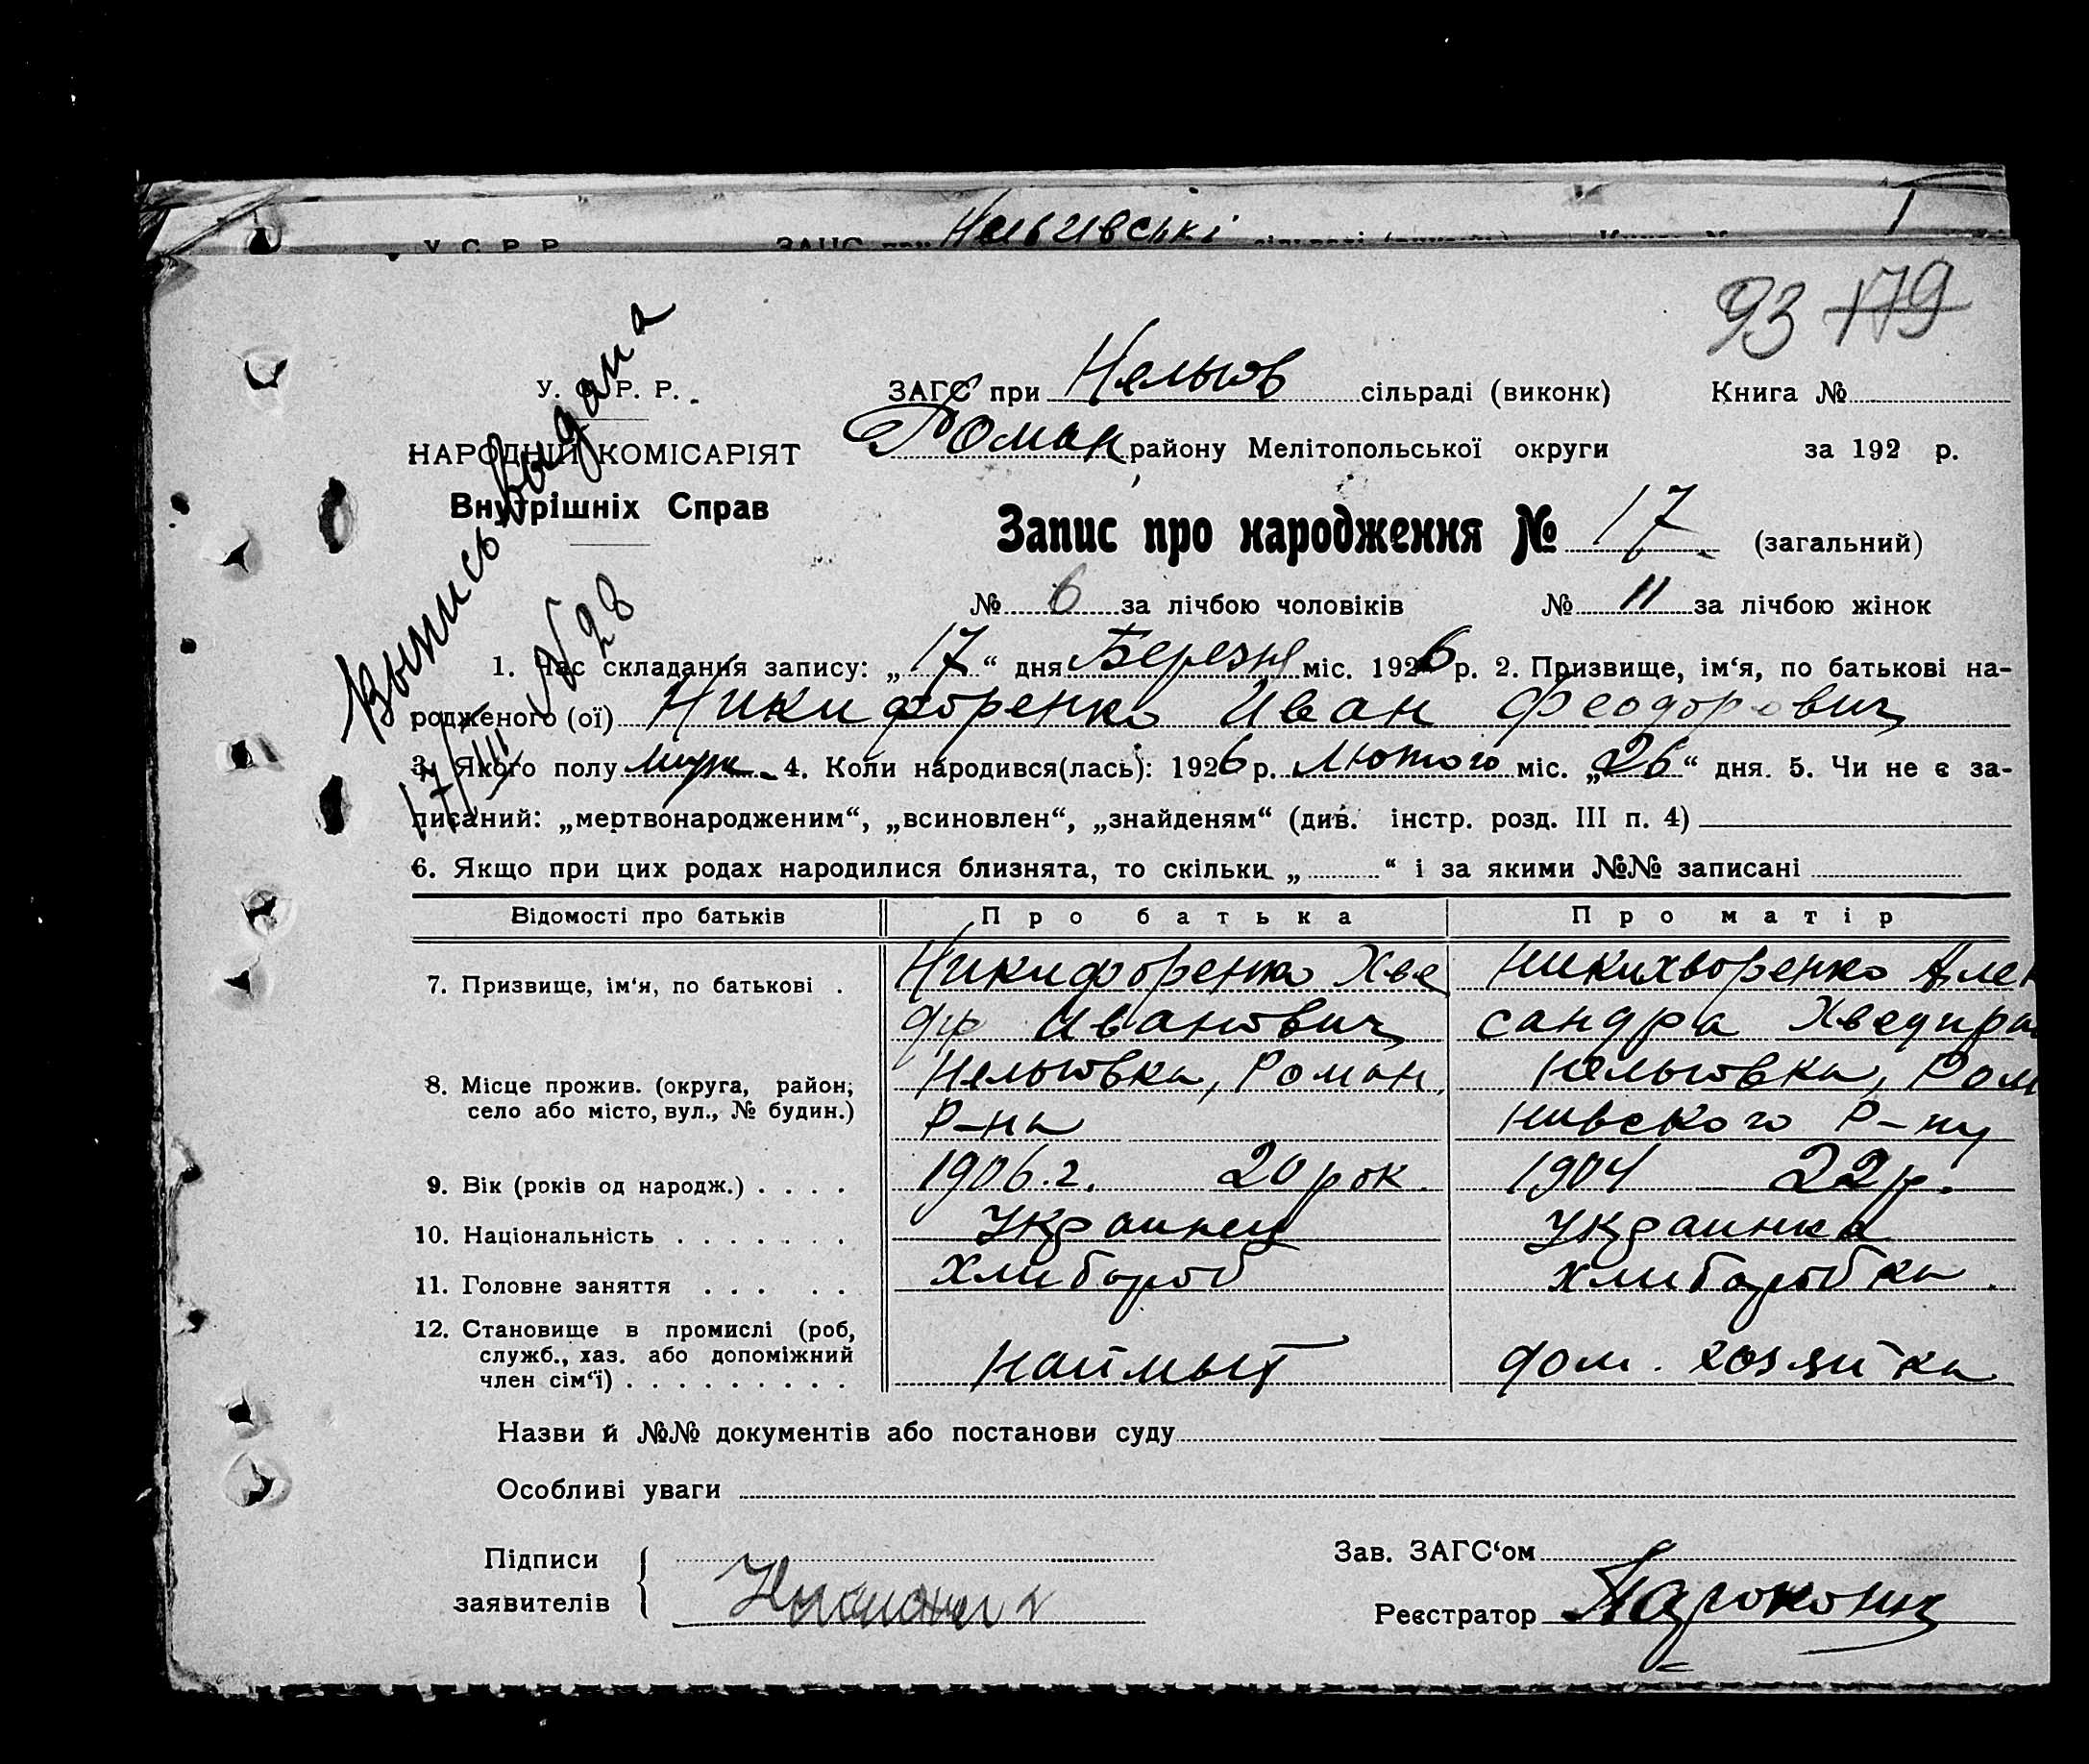 У. С. Р. Р. ЗАГС при сільраді
1
93 179
У. С. Р. Р. ЗАГС при Нельгов сільраді (виконк) Книга №
НАРОДНІЙ КОМІСАРІЯТ Роман району Мелітопольської округи за 192 р.
Внутрішніх Справ
Запис про народження № 17 (загальний)
№ 6 за лічбою чоловіків № 11 за лічбою жінок
Выпись выдана
17/III N 28
1. Час складання запису: „17“ дня Березня міс. 1926 р. 2. Призвище, ім‘я, по батькові на-
родженого (ої) Никифоренко Иван Феодорович
3. Якого полу муж. 4. Коли народився(лась): 1926 р. Лютого міс. „26“ дня. 5. Чи не є за-
писаний: „мертвонародженим“, „всиновлен“, „знайденям“ (див. інстр. розд. III п. 4)
6. Якщо при цих родах народилися близнята, то скільки „ “ і за якими №№ записані
Відомості про батьків Про батька Про матір
7. Призвище, ім‘я, по батькові . Никифоренко Хве Никихворенко Алек
дир Иванович сандра Хведиро
8. Місце прожив. (округа, район, Нельговка, Роман. Нельговка, Рома
село або місто, вул., № будин.) Р-на нивского Р-ну
9. Вік (років од народж.) . . . . 1906.г. 20 рок. 1904 22 р.
10. Національність . . . . . . . Украинец Украинка
11. Головне заняття . . . . . Хлибороб хлиборобка.
12. Становище в промислі (роб,
служб., хаз. або допоміжний
член сім‘ї) . . . . . . . . . наймыт дом. хозяйка
Назви й №№ документів або постанови суду
Особливі уваги
Підписи Зав. ЗАГС‘ом
заявителів Реєстратор